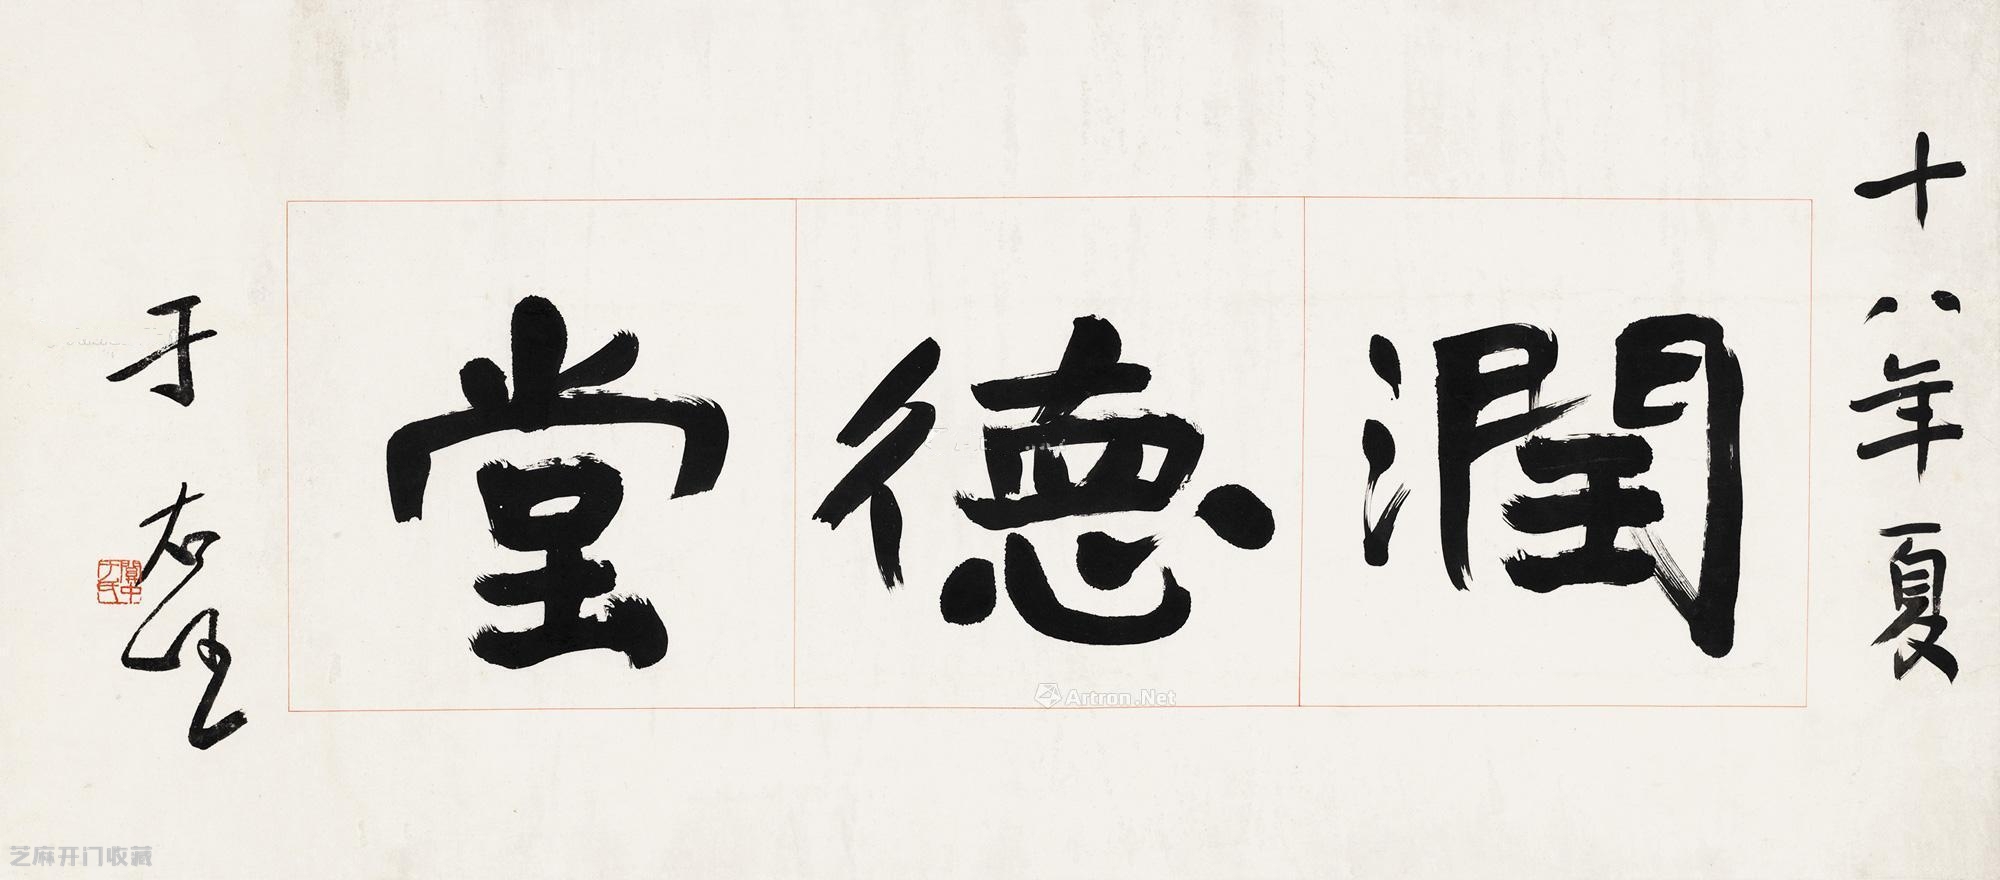 十八年夏
潤德堂
于右任
關中于氏
Artron.Net
芝麻开门收藏